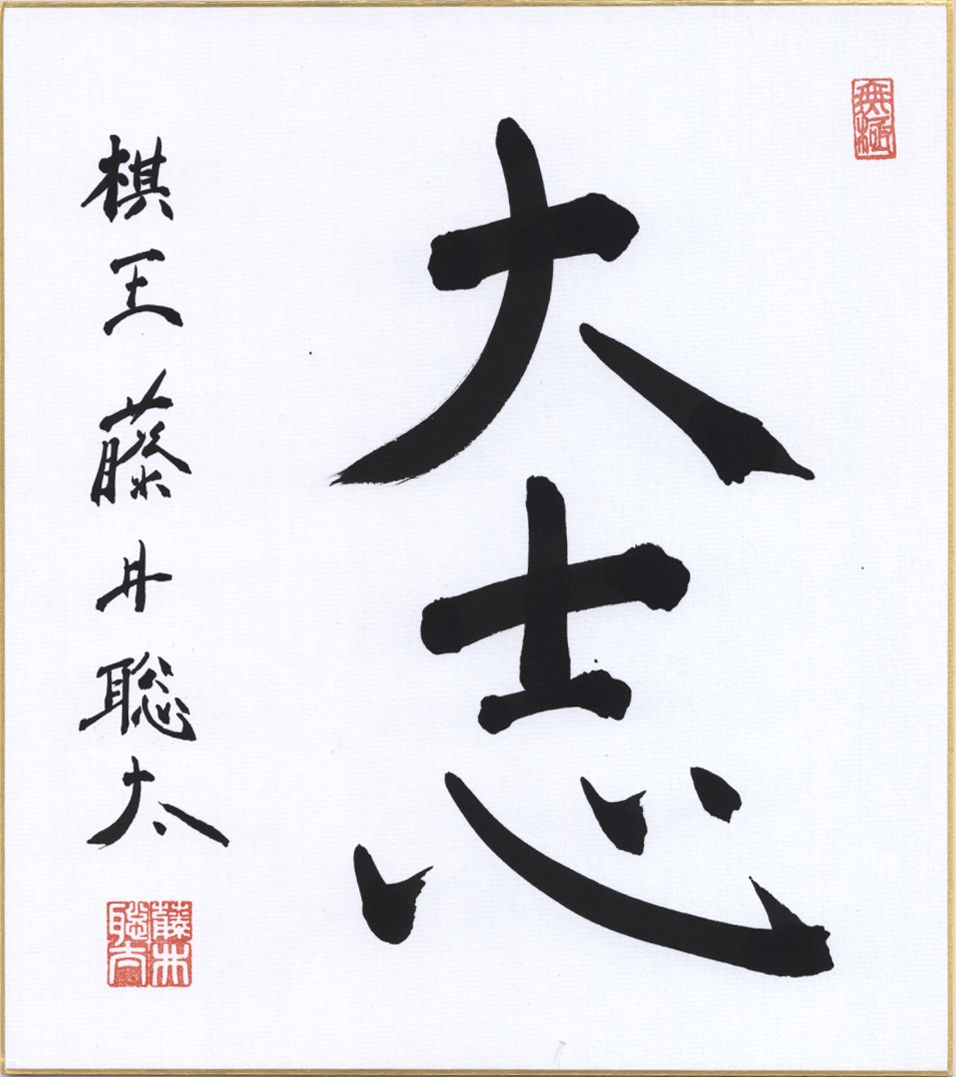 無極
大志
棋王 藤井聡太
藤井
聡太